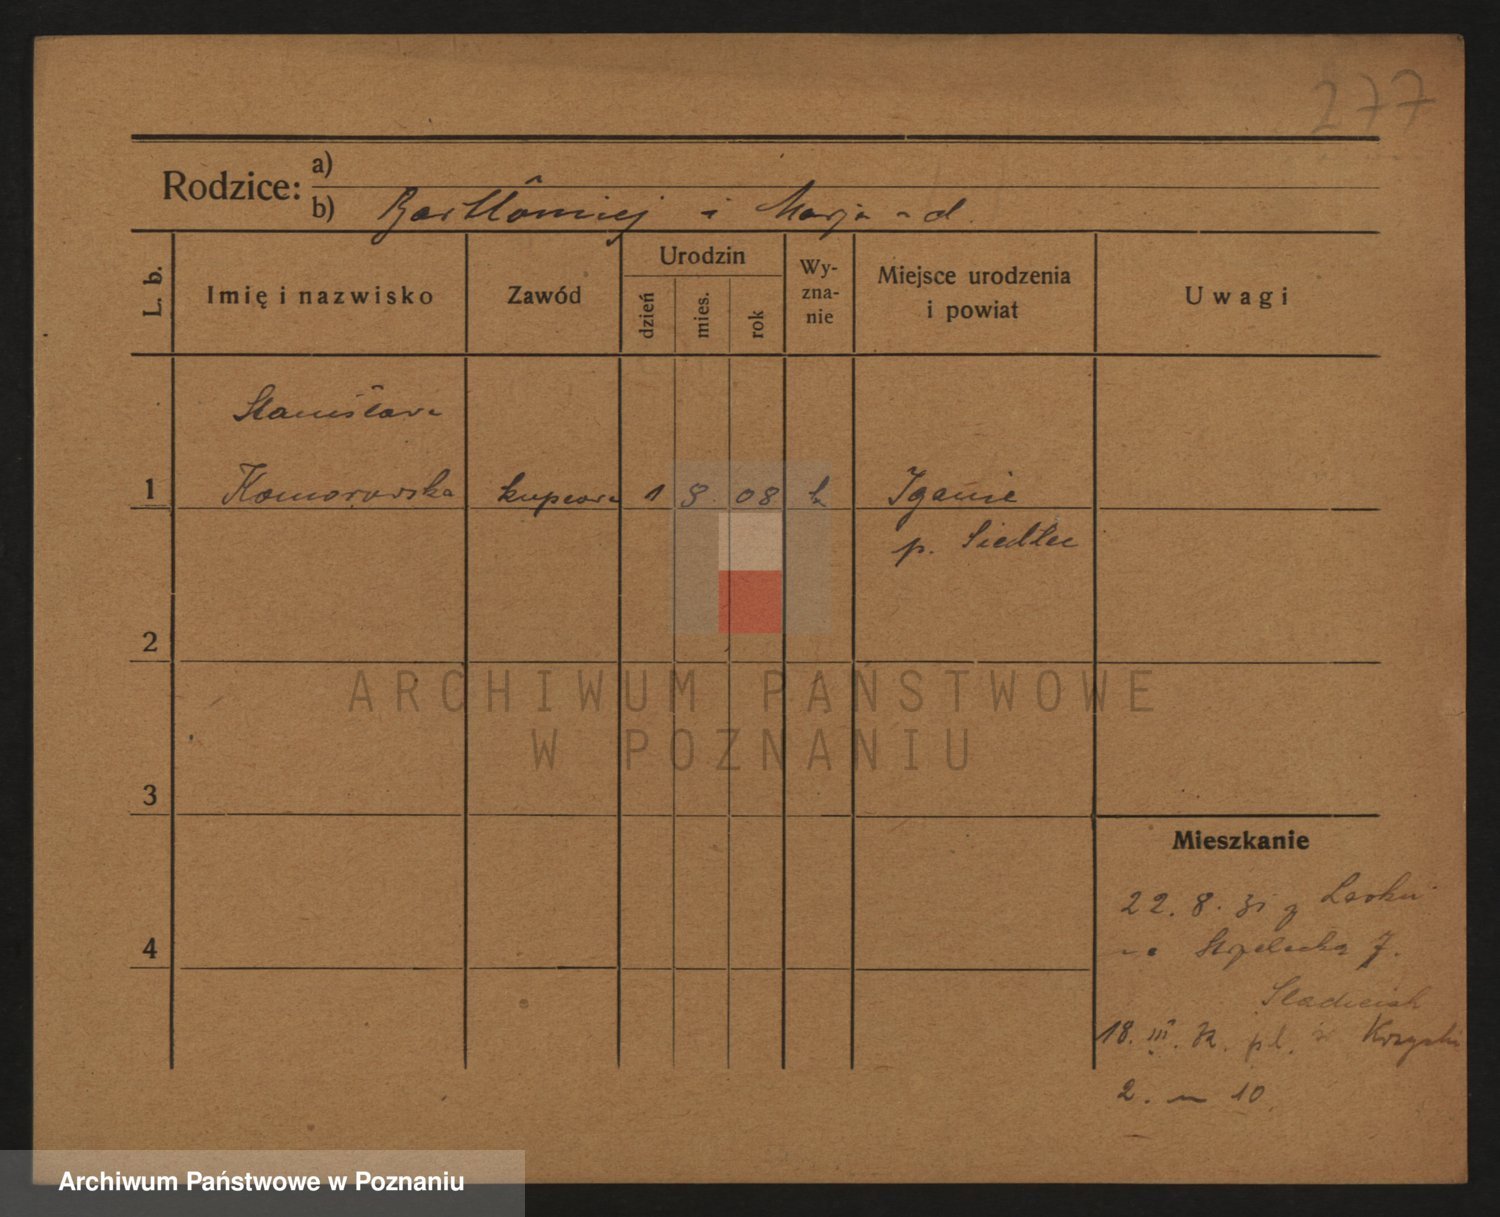 277
Rodzice: a)
b) Bartłomiej i Marja
L. b.
Imię i nazwisko
Zawód
Urodzin
dzień
mies.
rok
Wy-
zna-
nie
Miejsce urodzenia
i powiat
Uwagi
Stanisława
1 Komorowska kupcowa 1 8 08 k Iganie
p. Siedlec
2
ARCHIWUM PAŃSTWOWE
W POZNANIU
3
Mieszkanie
22. 8. 31 z
4 na Strzelecką 7.
18. III. pl. św Krzyski
2. m 10
Archiwum Państwowe w Poznaniu